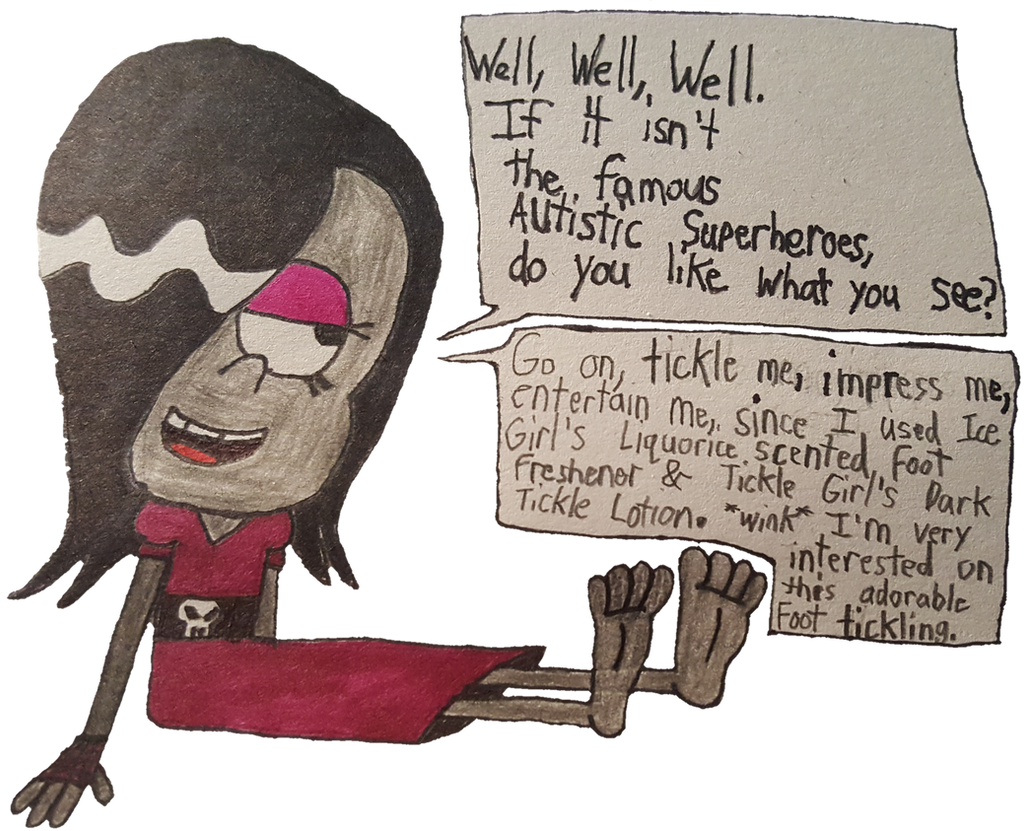 Well, Well, Well.
If it isn't
the famous
AUtistic Superheroes,
do you like what you see?
Go on, tickle me, impress me,
entertain me, since I used Ice
Girl's Liquorice scented foot
Freshener & Tickle Girl's Dark
Tickle Lotion. *wink* I'm very
interested on
this adorable
Foot tickling.